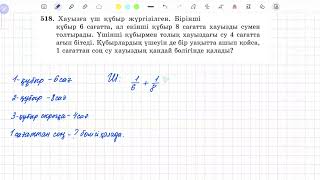 518. Хауызға үш құбыр жүргізілген. Бірінші
құбыр 6 сағатта, ал екінші құбыр 8 сағатта хауызды сумен
толтырады. Үшінші құбырмен толық хауыздағы су 4 сағатта
ағып бітеді. Құбырлардың үшеуін де бір уақытта ашып қойса,
1 сағаттан соң су хауыздың қандай бөлігінде қалады?
1-құбыр - 6 сағ
Ш: 1/6 + 1/8
2-құбыр - 8 сағ
3-құбыр - 4 сағ
1 сағаттан соң - ? бөлігі қалады.